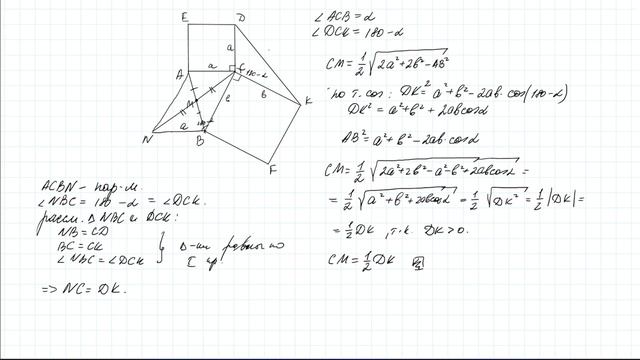 E D
a
A a C 180-α
M b b K
N a B
F
ACBN - пар-м.
∠NBC = 180-α = ∠DCK.
рассм. △NBC и DCK:
NB=CD
BC=CK
∠NBC=∠DCK
△-ки равны по
I пр
=> NC= DK.
∠ACB=α
∠DCK=180-α
CM=½√(2a²+2b²-AB²)
по т.cos: DK²=a²+b²-2ab·cos(180-α)
DK²=a²+b²+2abcosα
AB²=a²+b²-2ab·cosα
CM=½√(2a²+2b²-a²-b²+2abcosα) =
=½√(a²+b²+2abcosα) =½√(DK²)=½|DK|=
=½DK, т.к. DK>0.
CM=½DK